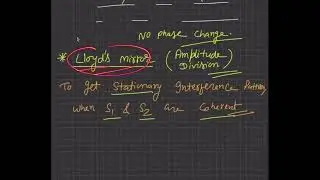 No phase change.
* Lloyd's mirror (Amplitude
Division)
To get Stationary Interference Pattern
when S1 & S2 are Coherent